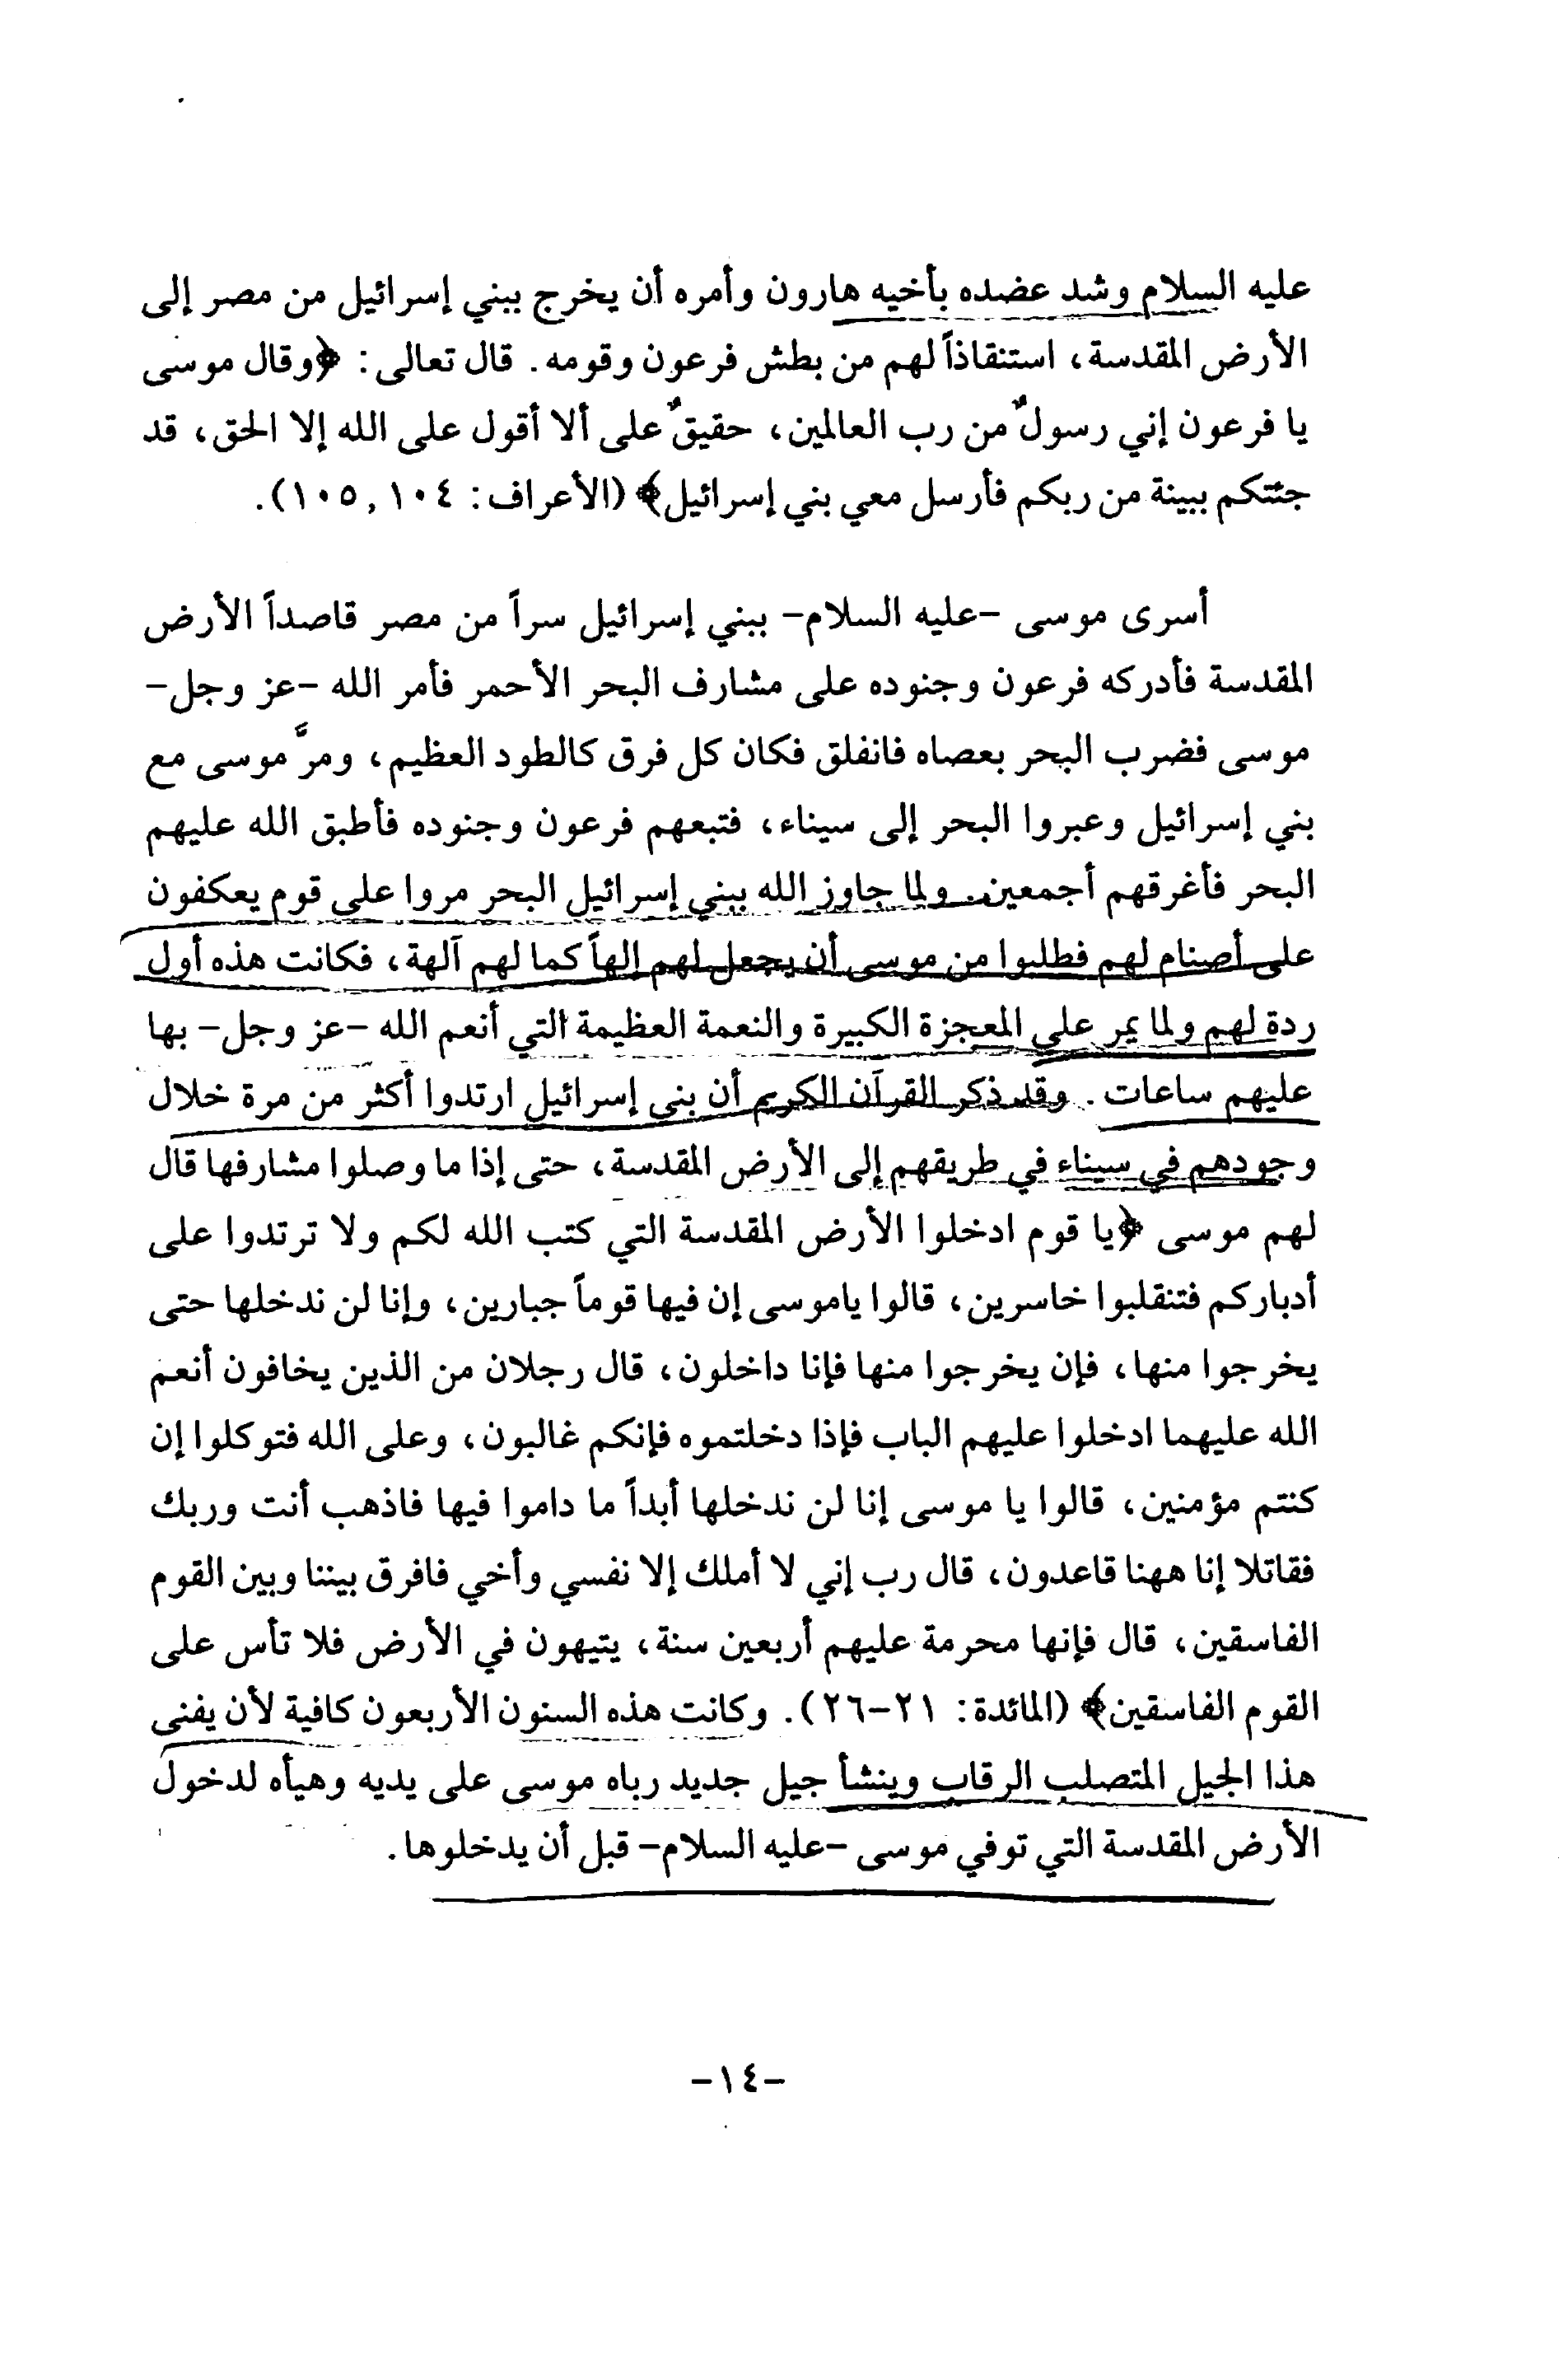 عليه السلام وشد عضده بأخيه هارون وأمره أن يخرج ببني إسرائيل من مصر إلى
الأرض المقدسة، استنقاذاً لهم من بطش فرعون وقومه. قال تعالى: ﴿وقال موسى
يا فرعون إني رسولٌ من رب العالمين، حقيقٌ على ألا أقول على الله إلا الحق، قد
جئتكم ببينة من ربكم فأرسل معي بني إسرائيل﴾ (الأعراف: ١٠٤, ١٠٥).
أسرى موسى -عليه السلام- ببني إسرائيل سراً من مصر قاصداً الأرض
المقدسة فأدركه فرعون وجنوده على مشارف البحر الأحمر فأمر الله -عز وجل-
موسى فضرب البحر بعصاه فانفلق فكان كل فرق كالطود العظيم، ومرَّ موسى مع
بني إسرائيل وعبروا البحر إلى سيناء، فتبعهم فرعون وجنوده فأطبق الله عليهم
البحر فأغرقهم أجمعين. ولما جاوز الله ببني إسرائيل البحر مروا على قوم يعكفون
على أصنام لهم فطلبوا من موسى أن يجعل لهم إلهاً كما لهم آلهة، فكانت هذه أول
ردة لهم ولما يمر على المعجزة الكبيرة والنعمة العظيمة التي أنعم الله -عز وجل- بها
عليهم ساعات. وقد ذكر القرآن الكريم أن بني إسرائيل ارتدوا أكثر من مرة خلال
وجودهم في سيناء في طريقهم إلى الأرض المقدسة، حتى إذا ما وصلوا مشارفها قال
لهم موسى ﴿يا قوم ادخلوا الأرض المقدسة التي كتب الله لكم ولا ترتدوا على
أدباركم فتنقلبوا خاسرين، قالوا ياموسى إن فيها قوماً جبارين، وإنا لن ندخلها حتى
يخرجوا منها، فإن يخرجوا منها فإنا داخلون، قال رجلان من الذين يخافون أنعم
الله عليهما ادخلوا عليهم الباب فإذا دخلتموه فإنكم غالبون، وعلى الله فتوكلوا إن
كنتم مؤمنين، قالوا يا موسى إنا لن ندخلها أبداً ما داموا فيها فاذهب أنت وربك
فقاتلا إنا ههنا قاعدون، قال رب إني لا أملك إلا نفسي وأخي فافرق بيننا وبين القوم
الفاسقين، قال فإنها محرمة عليهم أربعين سنة، يتيهون في الأرض فلا تأس على
القوم الفاسقين﴾ (المائدة: ٢١-٢٦). وكانت هذه السنون الأربعون كافية لأن يفنى
هذا الجيل المتصلب الرقاب وينشأ جيل جديد رباه موسى على يديه وهيأه لدخول
الأرض المقدسة التي توفي موسى -عليه السلام- قبل أن يدخلوها.
-١٤-